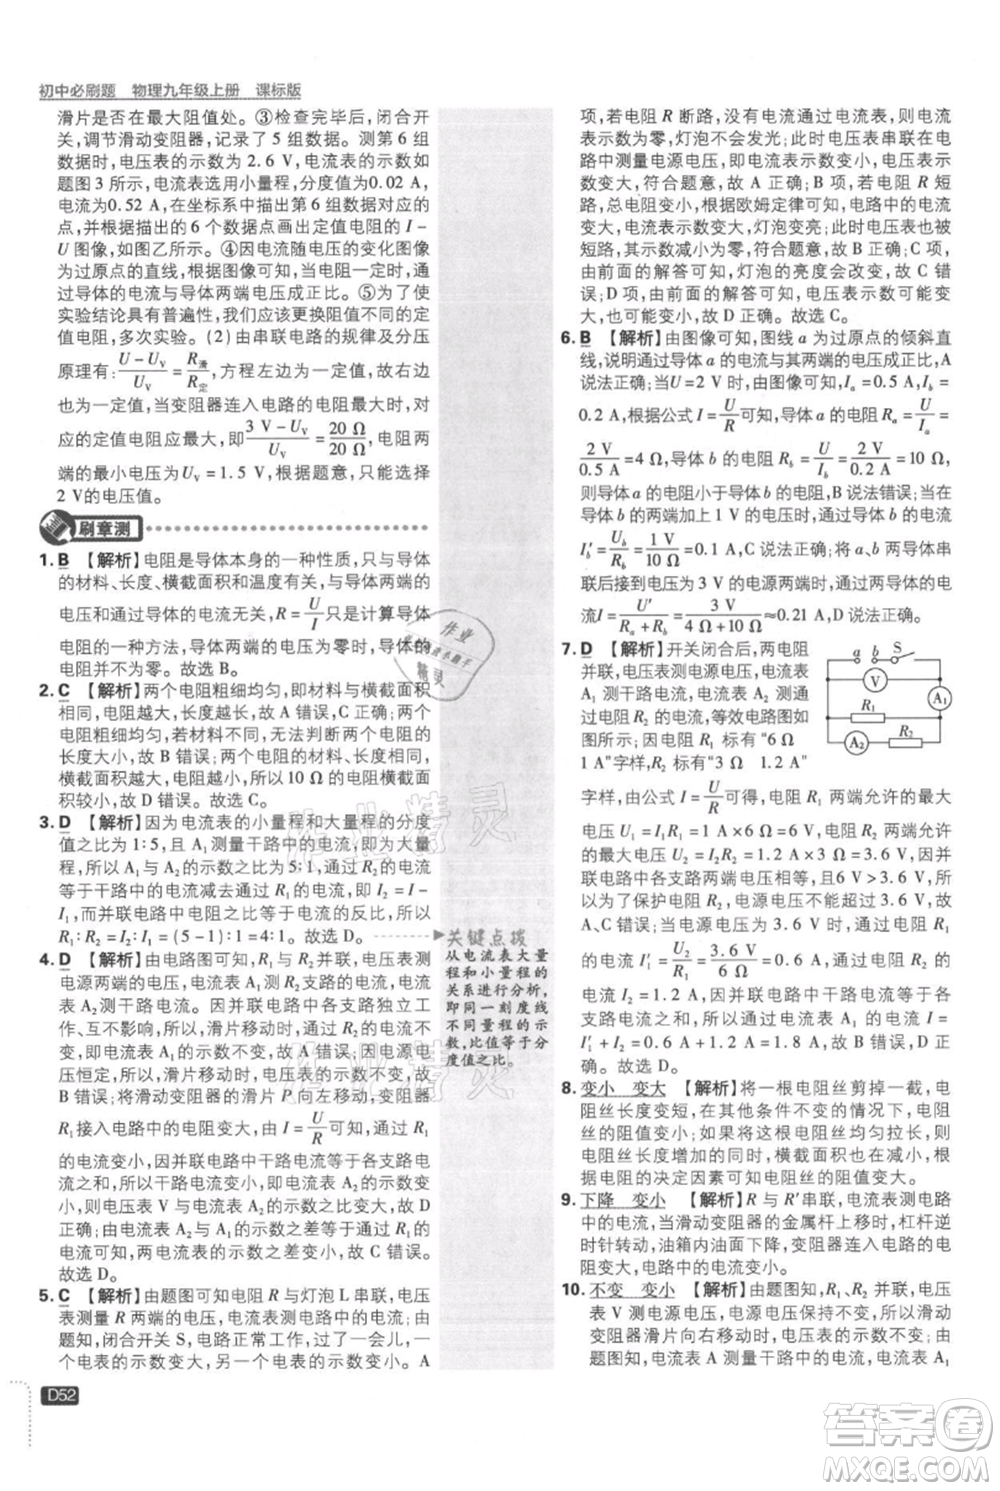 初中必刷题 物理九年级上册 课标版
滑片是否在最大阻值处。③检查完毕后,闭合开
关,调节滑动变阻器,记录了 5 组数据。测第 6 组
数据时,电压表的示数为 2.6 V,电流表的示数如
题图 3 所示,电流表选用小量程,分度值为0.02 A,
电流为0.52 A,在坐标系中描出第 6 组对应的点,
并根据描出的 6 个数据点画出定值电阻的 I －
U 图像,如图乙所示。④因电流随电压的变化图像
为过原点的直线,根据图像可知,当电阻一定时,通
过导体的电流与导体两端电压成正比。⑤为了使
实验结论具有普遍性,我们应该更换阻值不同的定
值电阻,多次实验。(2)由串联电路的规律及分压
原理有:(U－Uv)/Uv＝R滑/R定,方程左边为一定值,则右边
也为一定值,当变阻器连入电路的电阻最大时,对
应的定值电阻应最大,即(3 V－Uv)/Uv＝20 Ω/20 Ω,则电阻两
端的最小电压为Uv＝1.5 V,根据题意,只能选择
2 V的电压值。
刷章测
1. B 【解析】电阻是导体本身的一种性质,只与导体
的材料、长度、横截面积和温度有关,与导体两端的
电压和通过导体的电流无关,R＝U/I只是计算导体
电阻的一种方法,导体两端的电压为零时,电阻不
为零。故选 B。
2. C 【解析】两个电阻粗细均匀,即材料与横截面积
相同,电阻越大,长度越长,故 A 错误,C 正确;两个
电阻粗细均匀,若材料不同,无法判断两个电阻的
长度,故 B 错误;两个电阻粗细均匀,若长度相同,
横截面积越大,电阻越小,所以 10 Ω 的电阻横截面
积较大,故 D 错误。故选 C。
3. D 【解析】因为电流表的小量程和大量程的分度
值之比为 1∶5,且 A1 测量干路中的电流,则干路
中的电流与 R2 中的电流之比为 5∶1,并联电路中
R1 等于干路中的电流减去通过 R2 的电流,即 I－
I1,而并联电路中的电阻之比等于电流的反比,所以
R1∶R2＝I2∶I1＝(5－1)∶1＝4∶1。故选 D。
关键点拨
从电流表大量
程和小量程的
关系进行分析,
即同一刻度线
不同量程的示
数,比值等于分
度值之比。
4. D 【解析】由电路图可知,两电阻并联,电压表测
电源两端的电压,电流表 A2 测 R2 支路电流,电流
表 A1 测干路电流。因并联电路中各支路独立工
作、互不影响,所以,滑片移动时,通过 R2 的电流不
变,即电流表 A2 的示数不变,故 A 错误。因电源电
压恒定,所以,滑片移动时,电压表的示数不变,故
B 错误。将滑动变阻器的滑片 P 向左移动,变阻器
R1接入电路中的电阻变大,由 I＝U/R可知,通过 R1
的电流变小,因并联电路中干路电流等于各支路电
流之和,所以,干路电流变小,即电流表 A1 的示数
变小,则电压表 V 与电流表 A1 的示数之比变大,故
D 正确。由电流表 A1 与 A2 的示数之差等于通过 R1 的电
流可知,两电流表的示数之差变小,故 C 错误。
故选 D。
5. C 【解析】由题图可知电阻 R 与灯泡 L 串联,电压
表测量 R 两端的电压,电流表测量电路中的电流;由
题知,闭合开关 S,电路正常工作,过了一会儿,有
一个电表的示数变大,另一个电表的示数变小。A
项,若电阻 R 断路,只相当于电流表断路,电流
表示数为零,灯泡不发光;此时电压表串联在电
路中测量电源电压,即电流表示数变小,电压表示数
变大,符合题意,故 A 正确;B 项,若电阻 R 短路,
总电阻变小,根据欧姆定律可知,电路中的电流变
大,电流表的示数变大,灯泡变亮;电压表也被
短路,示数减小为零,符合题意,故 B 正确;C 项,
由前面的解答可知,灯泡的亮度会改变,故 C 错
误;D 项,由前面的解答可知,电压表示数可能变
大、可能变小,故 D 正确。故选 C。
6. B 【解析】由图像可知,图线 a 为过原点的倾斜直
线,说明通过导体 a 的电流与其两端的电压成正比,A
说法正确;当U＝2 V时,由图像可知,Ia＝0.5 A,Ib＝
0.2 A,根据公式 I＝U/R可知,导体 a 的电阻 Ra＝U/Ia＝
2 V/0.5 A＝4 Ω,导体 b 的电阻 Rb＝U/Ib＝2 V/0.2 A＝10 Ω,
则导体 a 的电阻小于导体 b 的电阻,B 说法错误;当
在导体 b 两端加上 1 V 电压时,通过导体 b 的电流
I′b＝Ub/Rb＝1 V/10 Ω＝0.1 A,C 说法正确;将 a、b 两导体串
联后接到电压为 3 V 的电源两端时,通过导体的电
流I＝U′/(Ra＋Rb)＝3 V/(4 Ω＋10 Ω)≈0.21 A,D 说法正确。
7. D 【解析】开关闭合后,两电阻
并联,电压表测电源电压,电流表
A1 测干路电流,电流表 A2 测通
过电阻 R2 的电流,等效电路图如
图所示;因电阻 R1 上标有“6 Ω
1 A”字样,R2 上标有“3 Ω 1.2 A”
字样,由公式 I＝U/R可得,电阻 R1 两端允许的最大
电压 U1＝I1R1＝1 A×6 Ω＝6 V,电阻 R2 两端允许
的最大电压 U2＝I2R2＝1.2 A×3 Ω＝3.6 V;因为
6 V＞3.6 V,且并联电路各支路两端电压相等,所以
为了保护电阻 R2,电源电压不能超过 3.6 V,故
A、C 错误。当电源电压为 3.6 V 时,通过电阻 R1
的电流 I′1＝U2/R1＝3.6 V/6 Ω＝0.6 A,此时通过电阻 R2
的电流 I2＝1.2 A,因并联电路中干路电流等于各
支路电流之和,所以,电流表 A1 的示数 I＝
I′1＋I2＝0.6 A＋1.2 A＝1.8 A,故 B 错误,D
正确。
a b S V A1 R1 R2 A2
8. 变小 变大 【解析】将一根电阻丝剪掉一截,电
阻丝长度变短,在其他条件不变的情况下,电阻丝
的阻值变小;如果将一根电阻丝均匀拉长,电阻丝
的长度增大的同时横截面积变小,由影响电阻大小
的决定因素可知电阻丝的阻值变大。
9. 下降 变小 【解析】R 与 R′串联,电流表测电路
中的电流,当滑动变阻器的金属杆上移时,杠杆逆
时针转动,油箱内油面下降,变阻器连入电路的电
阻变大,电路中的电流变小。
10. 不变 变小 【解析】由题图知,R1、R2 并联,电压
表 V 测电源电压,电源电压保持不变,则滑动变
阻器滑片向右移动时,电压表的示数不变;
由题图知,电流表 A 测量干路中的电流,电流表 A1
D52
作业精灵
作业精灵
答案圈
MXQE.COM